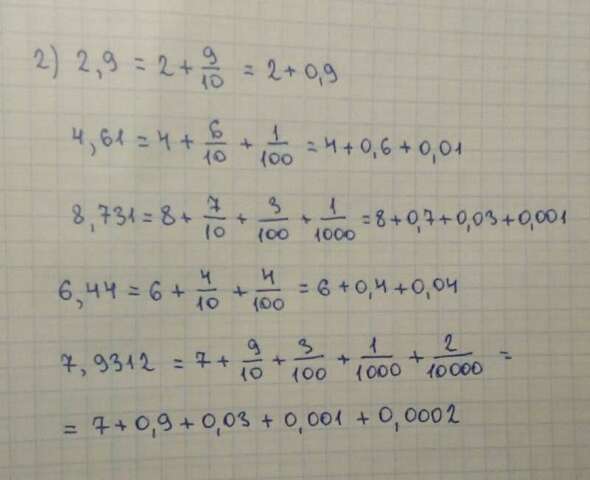 2) 2,9 = 2 + 9/10 = 2 + 0,9
4,61 = 4 + 6/10 + 1/100 = 4 + 0,6 + 0,01
8,731 = 8 + 7/10 + 3/100 + 1/1000 = 8 + 0,7 + 0,03 + 0,001
6,44 = 6 + 4/10 + 4/100 = 6 + 0,4 + 0,04
7,9312 = 7 + 9/10 + 3/100 + 1/1000 + 2/10000 =
= 7 + 0,9 + 0,03 + 0,001 + 0,0002